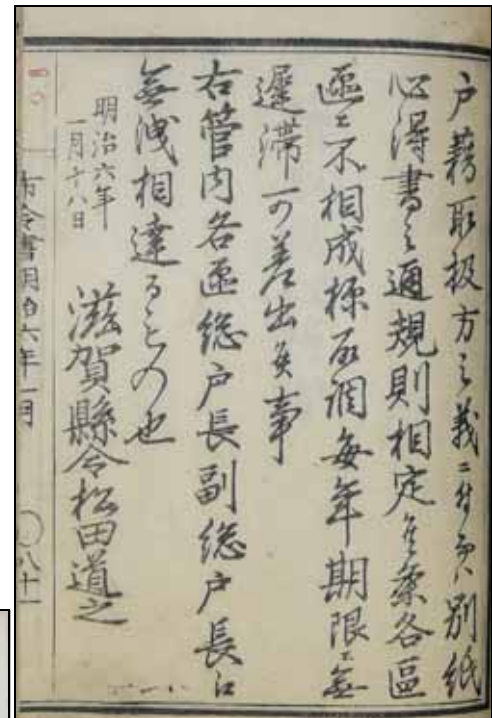 戸籍取扱方之義ニ付而ハ別紙
心得書之通規則相定候条各區
區ニ不相成様取調毎年期限ニ無
遅滞可差出候事
右管内各區総戸長副総戸長江
無洩相達るもの也
明治六年
一月十八日
滋賀縣令松田道之
布令書明治六年一月
八十一